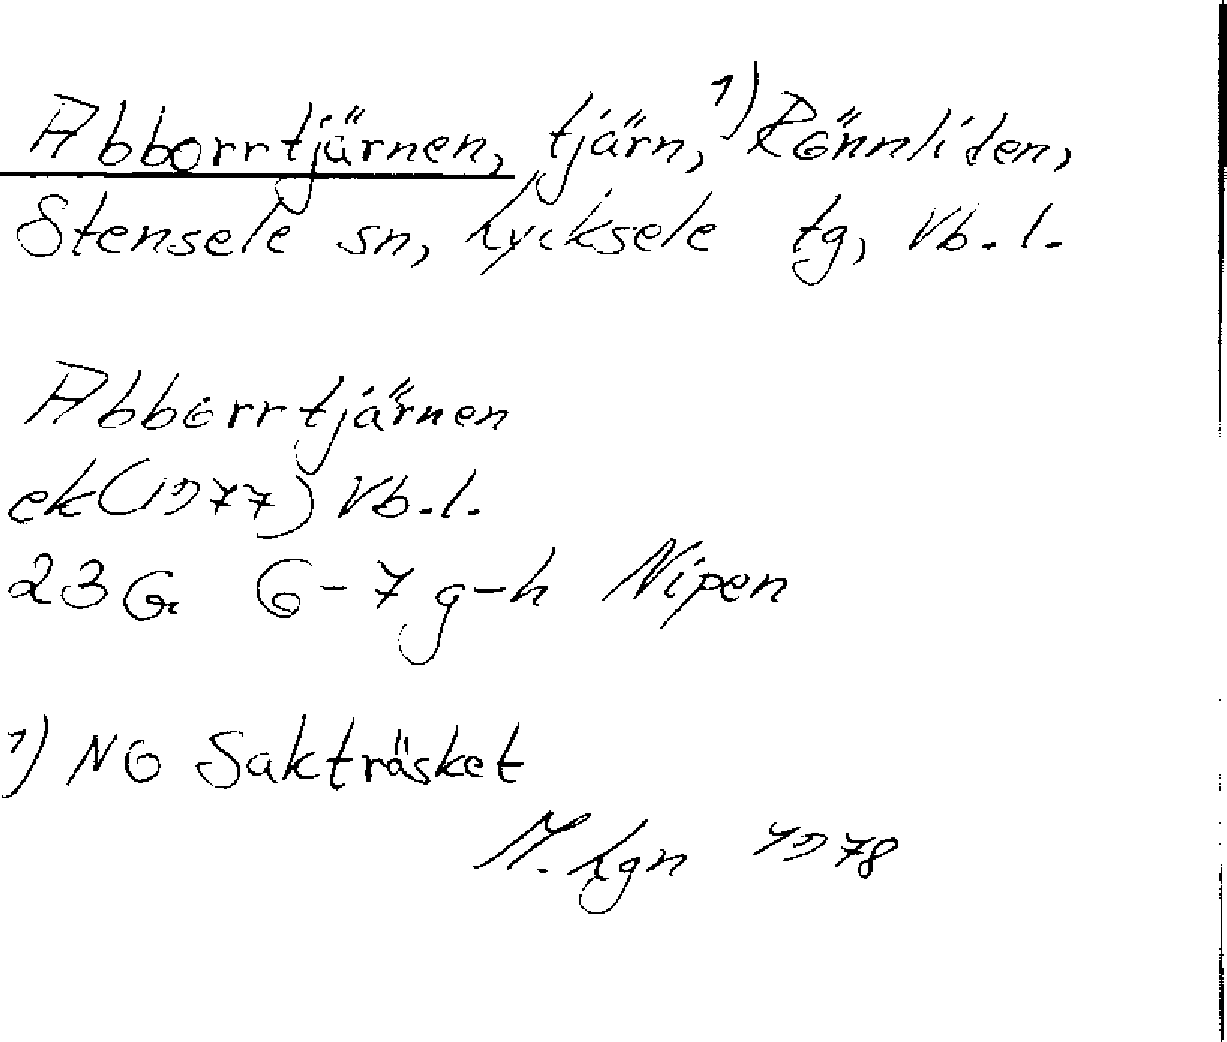 Abborrtjärnen, tjärn, ¹⁾ Rönnliden,
Stensele sn, Lycksele tg, Vb. l.
Abborrtjärnen
ek (1977) Vb. l.
23 G 6-7 g-h Nipen
1) NO Sakträsket
M. Lgn 1978